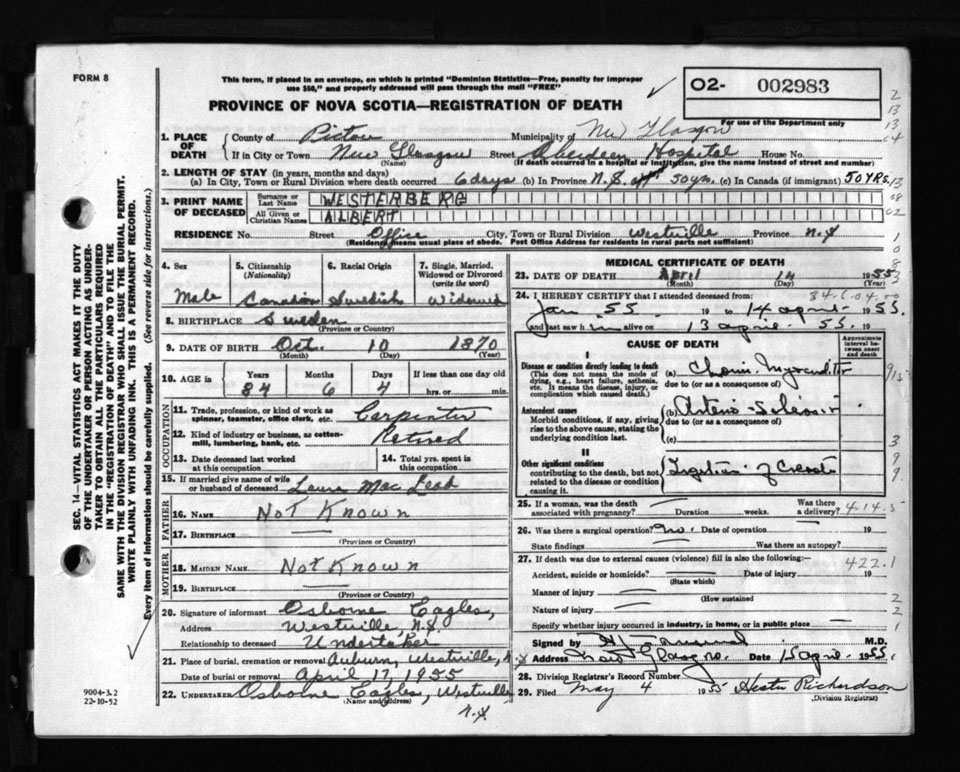 FORM 8
This form, if placed in an envelope, on which is printed "Dominion Statistics—Free, penalty for improper
use $50," and properly addressed will pass through the mail "FREE"
O2- 002983
For use of the Department only
PROVINCE OF NOVA SCOTIA—REGISTRATION OF DEATH
1. PLACE OF DEATH
County of Pictou Municipality of New Glasgow
If in City or Town New Glasgow Street Aberdeen Hospital House No.
(Name) (If death occurred in a hospital or institution, give the name instead of street and number)
2. LENGTH OF STAY (in years, months and days)
(a) In City, Town or Rural Division where death occurred 6 days (b) In Province N.S. 50 yrs. (c) In Canada (if immigrant) 50 YRS.
3. PRINT NAME OF DECEASED
Surname or Last Name WESTERBERG
All Given or Christian Names ALBERT
RESIDENCE No. Street Office City, Town or Rural Division Westville Province N.S
(Residency means usual place of abode. Post Office Address for residents in rural parts not sufficient)
4. Sex Male
5. Citizenship (Nationality) Canadian
6. Racial Origin Swedish
7. Single, Married, Widowed or Divorced (write the word) Widowed
8. BIRTHPLACE Sweden
(Province or Country)
9. DATE OF BIRTH Oct. 10 1870
(Month) (Day) (Year)
10. AGE in Years Months Days If less than one day old
84 6 4 hrs. or min.
OCCUPATION
11. Trade, profession, or kind of work as spinner, teamster, office clerk, etc. Carpenter
12. Kind of industry or business, as cotton-mill, lumbering, bank, etc. Retired
13. Date deceased last worked at this occupation
14. Total yrs. spent in this occupation
15. If married give name of wife or husband of deceased Laura Mac Leod
FATHER
16. NAME Not Known
17. BIRTHPLACE —
(Province or Country)
MOTHER
18. MAIDEN NAME Not Known
19. BIRTHPLACE —
(Province or Country)
20. Signature of informant Osborne Eagles,
Address Westville N.S.
Relationship to deceased Undertaker
21. Place of burial, cremation or removal Auburn, Westville, N.S
Date of burial or removal April 17, 1955
22. UNDERTAKER Osborne Eagles, Westville
(Name and address) N.S
MEDICAL CERTIFICATE OF DEATH
23. DATE OF DEATH April 14 1955
(Month) (Day)
24. I HEREBY CERTIFY that I attended deceased from:
84.6.04.00
Jan 55 19 to 14 april - 1955.
and last saw h im alive on 13 april - 55. 19
CAUSE OF DEATH
Approximate interval between onset and death
I
Disease or condition directly leading to death (a) Chronic Myocarditis
(This does not mean the mode of dying, e.g., heart failure, asthenia, etc. It means the disease, injury, or complication which caused death.)
due to (or as a consequence of)
Antecedent causes
Morbid conditions, if any, giving rise to the above cause, stating the underlying condition last.
(b) Arterio-Sclerosis
due to (or as a consequence of)
(c)
II
Other significant conditions
contributing to the death, but not related to the disease or condition causing it.
Ingestion of Creosote
25. If a woman, was the death associated with pregnancy? Duration weeks. Was there a delivery? 4.14.5
26. Was there a surgical operation? no. Date of operation — 19
State findings Was there an autopsy?
27. If death was due to external causes (violence) fill in also the following:— 422.1
Accident, suicide or homicide? Date of injury 19
(State which)
Manner of injury
(How sustained
Nature of injury
Specify whether injury occurred in industry, in home, or in public place
Signed by M.D.
Address New Glasgow. Date 15 april - 1955
28. Division Registrar's Record Number
29. Filed May 4 1955 Hester Richardson
(Division Registrar)
SEC. 14—VITAL STATISTICS ACT MAKES IT THE DUTY
OF THE UNDERTAKER OR PERSON ACTING AS UNDER-
TAKER TO OBTAIN ALL THE PARTICULARS REQUIRED
IN THE "REGISTRATION OF DEATH" AND TO FILE THE
SAME WITH THE DIVISION REGISTRAR WHO SHALL ISSUE THE BURIAL PERMIT.
WRITE PLAINLY WITH UNFADING INK. THIS IS A PERMANENT RECORD.
Every item of information should be carefully supplied. (See reverse side for instructions.)
9004-3.2
22-10-52